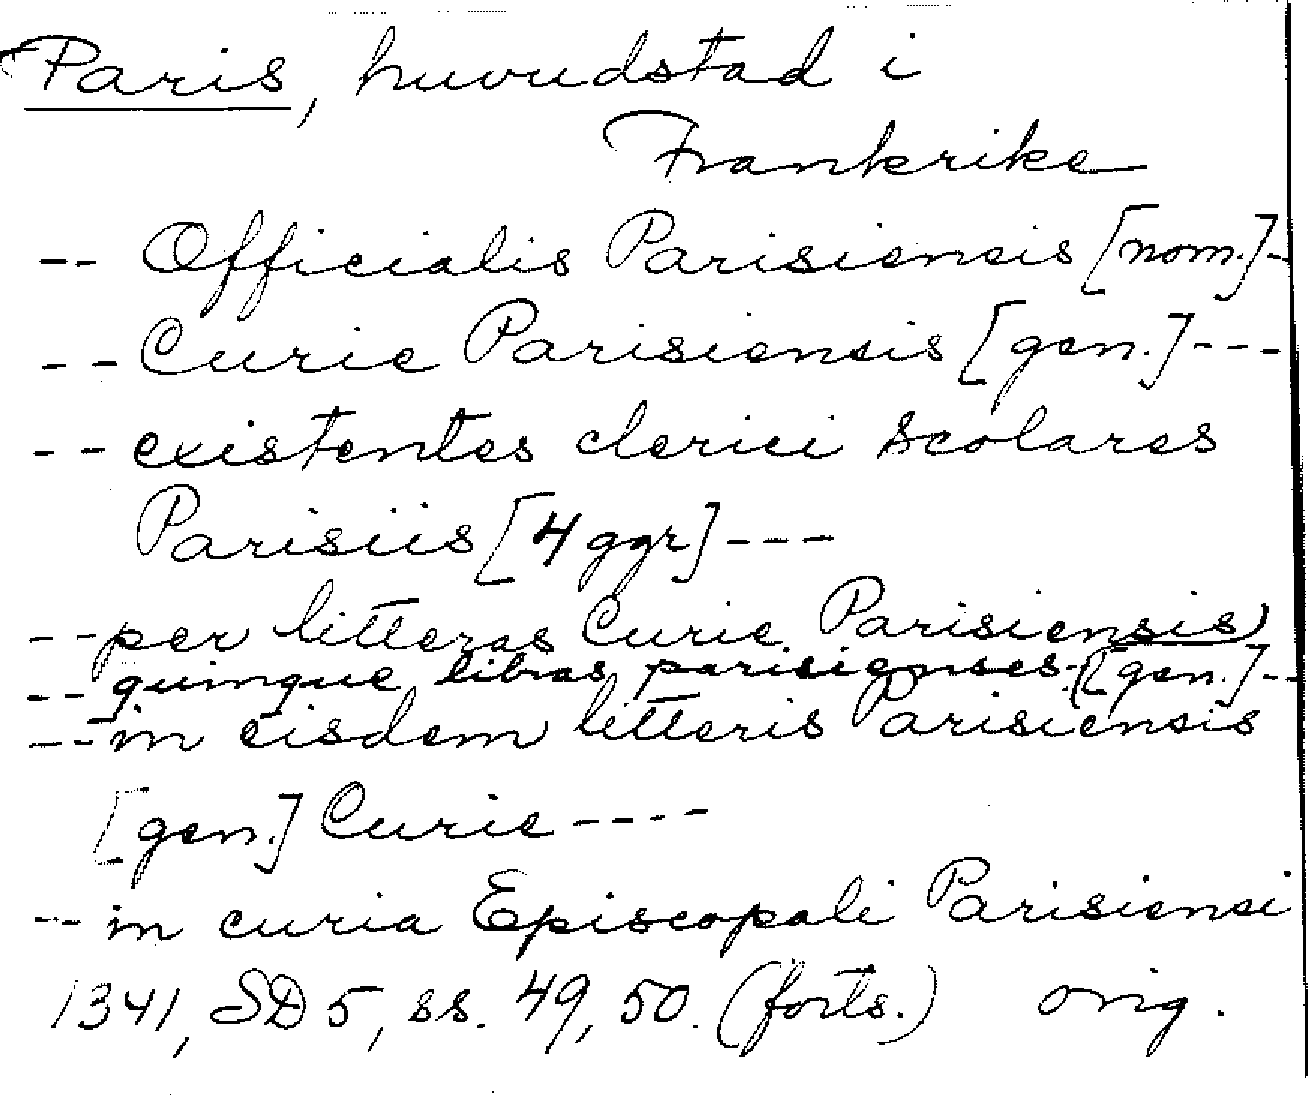 Paris, huvudstad i
Frankrike
-- Officialis Parisiensis [nom.]-
-- Curie Parisiensis [gen.]---
-- existentes clerici scolares
Parisiis [4 ggr]---
-- per litteras Curie Parisiensis
-- quinque libras parisienses. [gen.]--
-- in eisdem litteris Parisiensis
[gen.] Curie----
-- in curia Episcopali Parisiensi
1341, SD 5, ss. 49, 50. (forts.) orig.